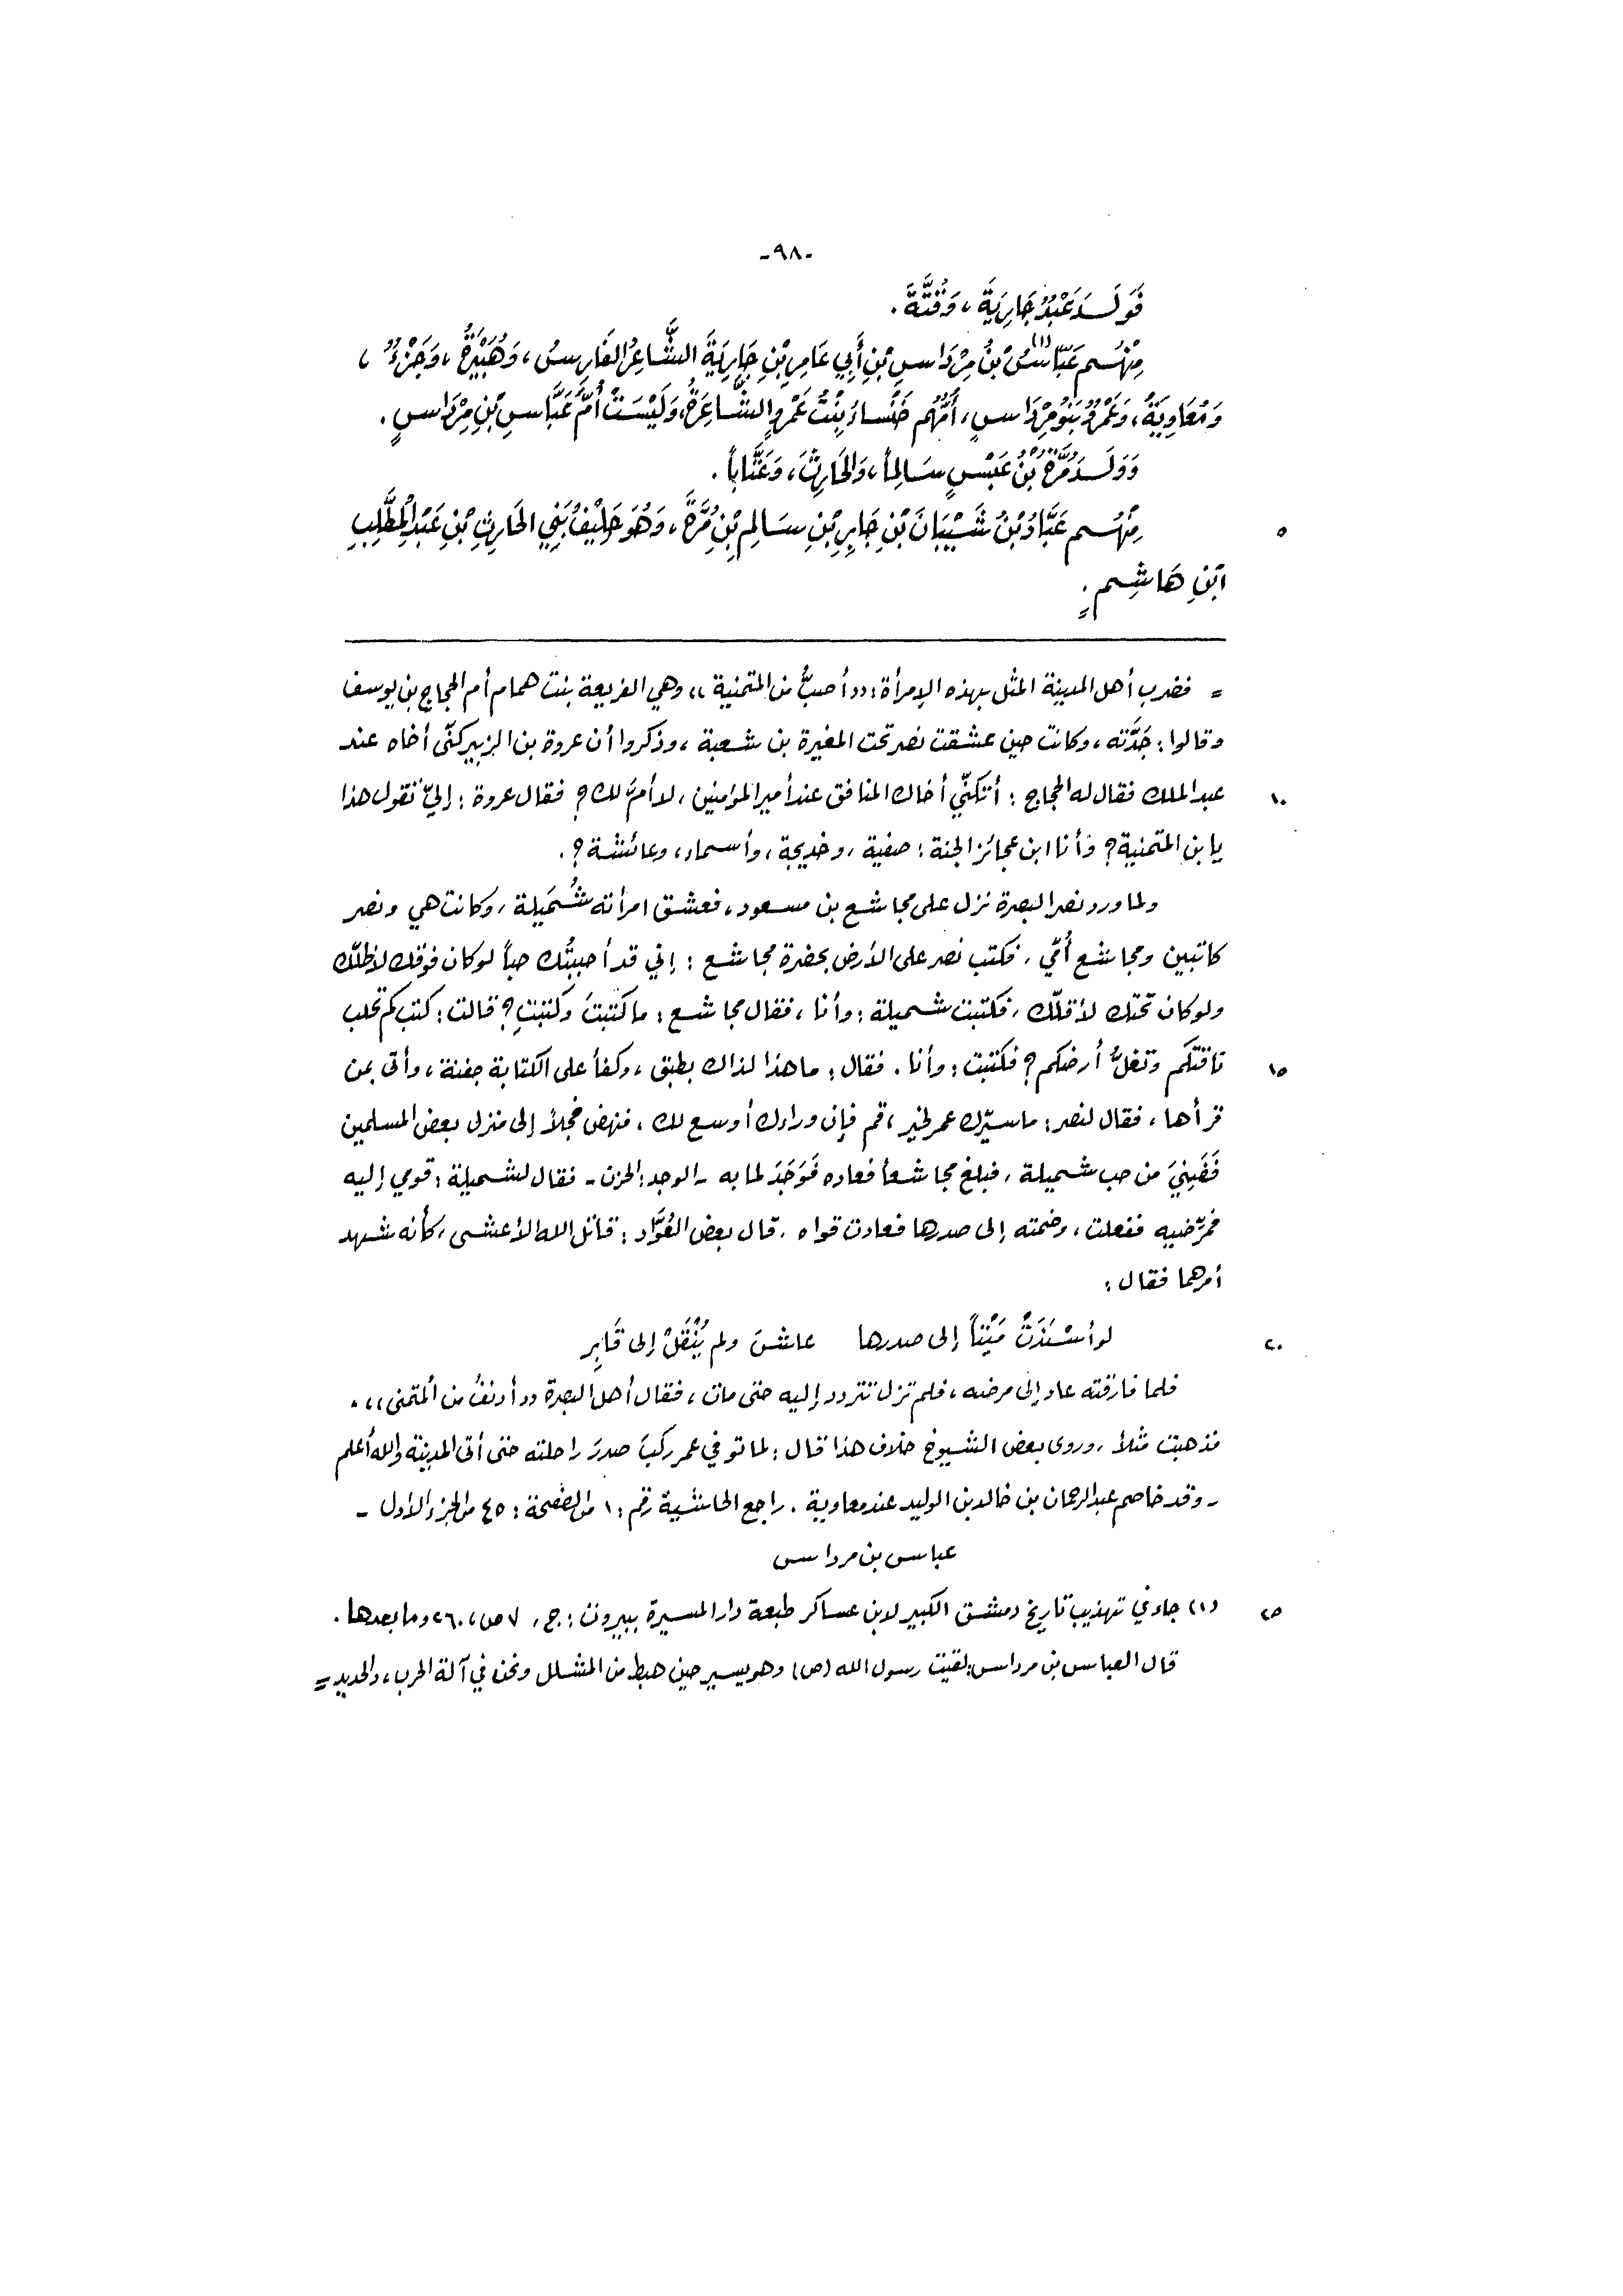 -٩٨-
فَوَلَدَ عَبْدُ جَارِيَةَ، وَقُنَّةَ.
مِنْهُم عَبَّاسُ (١) بْنُ مِرْدَاسِ بْنِ أَبِي عَامِرِ بْنِ جَارِيَةَ الشَّاعِرُ الفَارِسُ، وَهُبَيْرَةُ، وَجَزْءُ،
وَمُعَاوِيَةُ، وَعَمْرُو بَنُو مِرْدَاسٍ، أُمُّهُم خَنْسَاءُ بِنْتُ عَمْرٍو الشَّاعِرَةُ، وَلَيْسَتْ أُمَّ عَبَّاسِ بْنِ مِرْدَاسٍ.
وَوَلَدَ مُرَّةُ بْنُ عَبْسٍ سَالِماً، وَالحَارِثَ، وَعَتَّاباً.
مِنْهُم عَبَّادُ بْنُ شَيْبَانَ بْنِ جَابِرِ بْنِ سَالِمِ بْنِ مُرَّةَ، وَهُوَ حَلِيْفُ بَنِي الحَارِثِ بْنِ عَبْدِ الْمُطَّلِبِ
٥
ابْنِ هَاشِمٍ.
=
= فضرب أهل المدينة المثل بهذه الإمرأة: «أصبُّ من المتمنية» وهي الفريعة بنت همام أم الحجاج بن يوسف
وقالوا: جَدَّته، وكانت حين عشقت نصر تحت المغيرة بن شعبة، وذكروا أن عروة بن الزبير كنّى أخاه عند
عبد الملك فقال له الحجاج: أتكنّي أخاك المنافق عند أمير المؤمنين، لا أمَّ لك؟ فقال عروة: إليّ تقول هذا
١٠
يا بن المتمنية؟ وأنا ابن عجائز الجنة: صفية، وخديجة، وأسماء، وعائشة؟.
ولما ورد نصر البصرة نزل على مجاشع بن مسعود، فعشق امرأته شُمَيلة، وكانت هي ونصر
كاتبين ومجاشع أُمِّي، فكتب نصر على الأرض بحضرة مجاشع: إني قد أحببتُك حباً لو كان فوقك لأظلّك
ولو كان تحتك لأقلّك، فكتبت شميلة: وأنا، فقال مجاشع: ما كَتبتَ وكتبتِ؟ قالت: كتب كم تحلب
ناقتكم وتغلُّ أرضكم؟ فكتبت: وأنا. فقال: ما هذا لذاك بطبق، وكفأ على الكتابة جفنة، وأتى بمن
١٥
قرأها، فقال لنصر: ما سيّرك عمر لخير، قم فإن وراءك أوسع لك، فنهض خجلاً إلى منزل بعض المسلمين
فَضَنِيَ من حب شميلة، فبلغ مجاشعاً فعاده فَوَجَدَ لما به - الوجد: الحزن - فقال لشميلة: قومي إليه
فمرّضيه ففعلت، وضمته إلى صدرها فعادت قواه، قال بعض العُوَّاد: قاتل الله الأعشى، كأنه شهد
أمرهما فقال:
لو أَسْنَدَتْ مَيْتاً إلى صدرها    عاشَ ولم يُنْقَلْ إلى قَابِرِ
٢٠
فلما فارقته عاد إلى مرضه، فلم تزل تتردد إليه حتى مات، فقال أهل البصرة «أدنفُ من المتمنى».
فذهبت مثلاً، وروى بعض الشيوخ خلاف هذا قال: لما توفي عمر ركبَ صدرَ راحلته حتى أتى المدينة والله أعلم
- وقد خاصم عبد الرحمان بن خالد بن الوليد عند معاوية. راجع الحاشية رقم: ١ من الصفحة: ٤٥ من الجزء الأول -
عباس بن مرداس
(١) جاء في تهذيب تاريخ دمشق الكبير لابن عساكر طبعة دار المسيرة ببيروت: ج، ٧ ص، ٢٦٠ وما بعدها.
٢٥
قال العباس بن مرداس: لقيت رسول الله (ص) وهو يسير حين هبط من المشلل ونحن في آلة الحرب، والحديد =